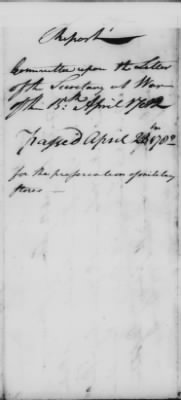 Report
Committee upon the Letter
of the Secretary at War
of the 15th April 1782
Passed April 23d 1782
for the preservation of military
stores —